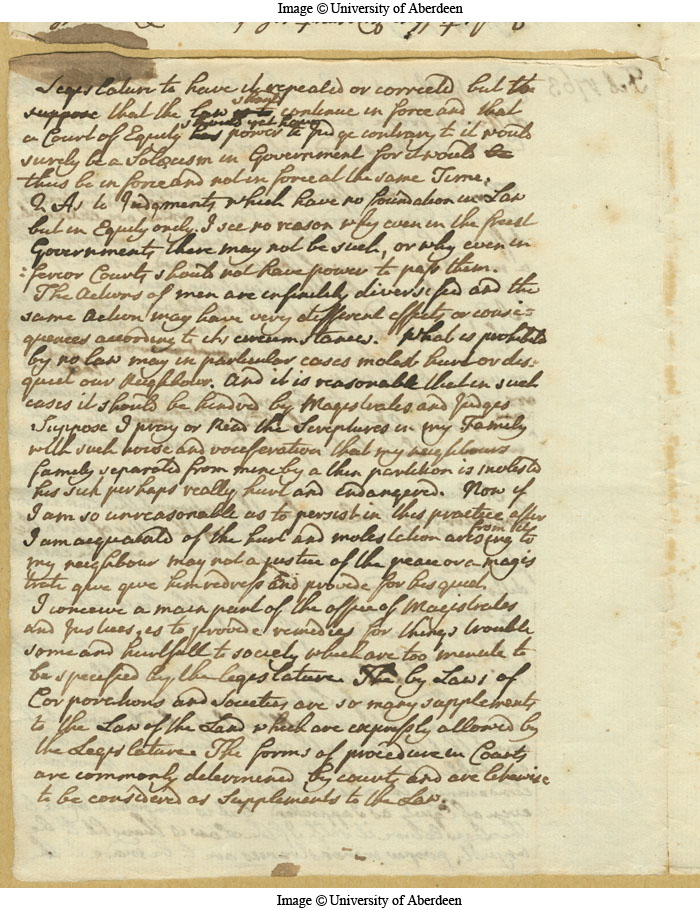 Image © University of Aberdeen
Legislature to have it repealed or corrected but to
should
suppose that the Law is to continue in force and that
should yet have
a Court of Equity has power to judge contrary to it would
surely be a Solœcism in Government for it would be
thus be in force and not in force at the same Time.
2 As to Judgments which have no foundation in Law
but in Equity only. I see no reason why even in the freest
Governments there may not be such, or why even in
:ferior Courts should not have power to pass them.
The Actions of men are infinitely diversified and the
same Action may have very different effects or conse-
quences according to its circumstances. What is prohibited
by no law may in particular cases molest hurt or dis-
quiet our Neighbour. And it is reasonable that in such
cases it should be hindred by Magistrates and Judges
Suppose I pray or Read the Scriptures in my Family
with such noise and vociferation that my neighbours
family separated from mine by a thin partition is molested
his sick perhaps really hurt and endangered. Now if
I am so unreasonable as to persist in this practice after
from this
I am acquainted of the hurt and molestation arising to
my neighbour may not a justice of the peace or a magis
trate give give him redress and provide for his quiet
I conceive a main part of the office of Magistrates
and Justices, is to provide remedies for things trouble
some and hurtfull to society which are too minute to
be specified by the legislature. The by Laws of
Corporations and Societies are so many supplements
to the Law of the Land which are expressly allowed by
the Legislature. The forms of procedure in Courts
are commonly determined by courts and are likewise
to be considered as Supplements to the Law.
Image © University of Aberdeen